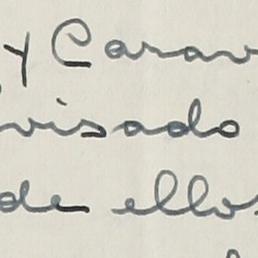 y Carav
visado
de ellos